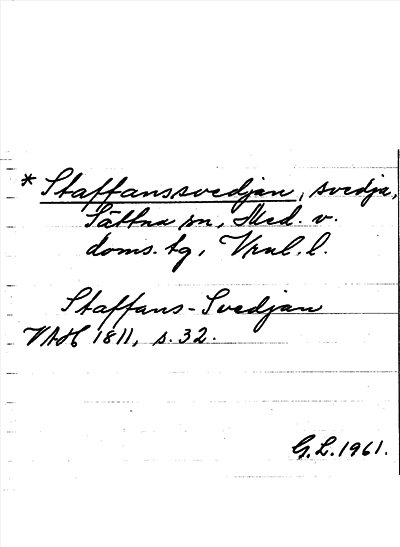 * Staffanssvedjan, svedja,
Sättna sn, Med. v.
doms. tg, Vnl. l.
Staffans-Svedjan
VAH 1811, s. 32.
G.L. 1961.